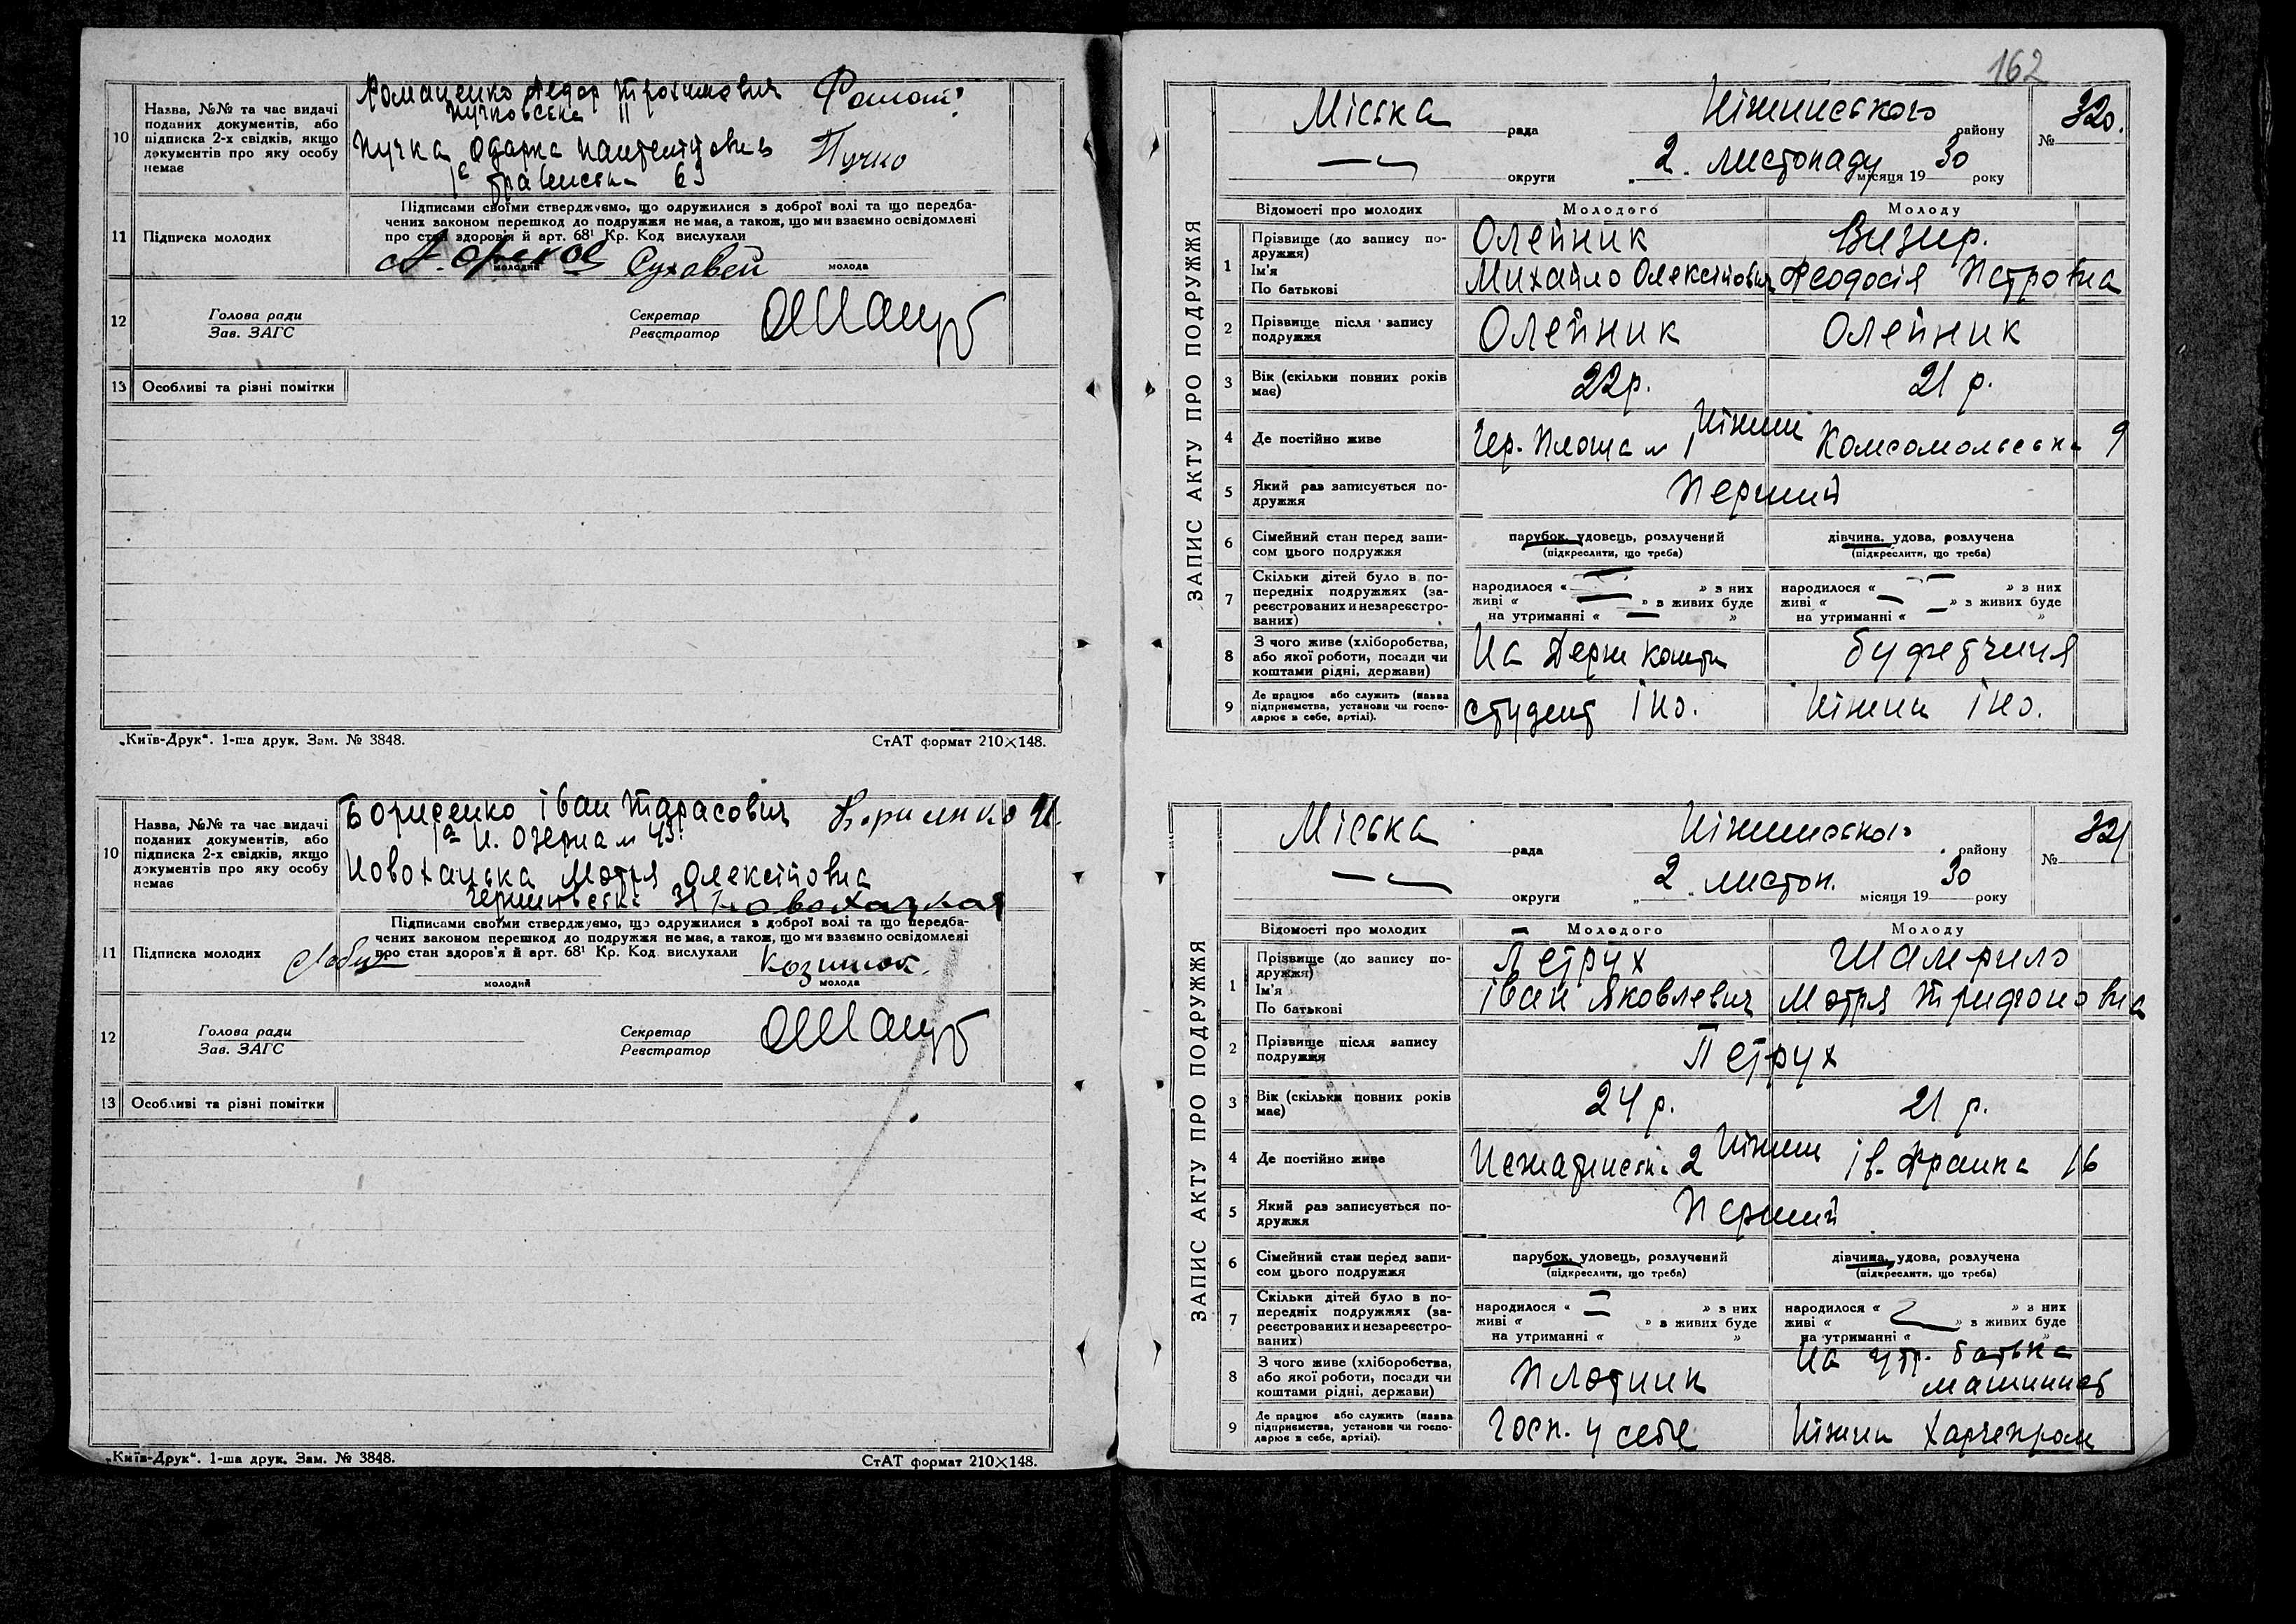 10
Назва, №№ та час видачі
поданих документів, або
підписка 2-х свідків, якщо
документів про яку особу
немає
Романенко Федор Трохимович
Пучковська 11
Пучка Одарка
63
Пучко
11
Підписка молодих
Підписами своїми стверджуємо, що одружилися з доброї волі та що передба-
чених законом перешкод до подружжя не має, а також, що ми взаємно освідомлені
про стан здоров'я й арт. 68¹ Кр. Код вислухали
молодий
Суховей
молода
12
Голова ради
Зав. ЗАГС
Секретар
Реєстратор
13
Особливі та різні помітки
„Київ-Друк". 1-ша друк. Зам. № 3848.
СтАТ формат 210×148.
10
Назва, №№ та час видачі
поданих документів, або
підписка 2-х свідків, якщо
документів про яку особу
немає
Борисенко Іван Тарасович
Н. Озерна
Мотря Олексіївна
11
Підписка молодих
Підписами своїми стверджуємо, що одружилися з доброї волі та що передба-
чених законом перешкод до подружжя не має, а також, що ми взаємно освідомлені
про стан здоров'я й арт. 68¹ Кр. Код вислухали
молодий
молода
12
Голова ради
Зав. ЗАГС
Секретар
Реєстратор
13
Особливі та різні помітки
„Київ-Друк". 1-ша друк. Зам. № 3848.
СтАТ формат 210×148.
162
ЗАПИС АКТУ ПРО ПОДРУЖЖЯ
Міська рада Ніжинського району
№ 320.
округи „ 2. листопаду місяця 1930 року
Відомості про молодих
Молодого
Молоду
1
Прізвище (до запису по-
дружжя)
Ім'я
По батькові
Олейник
Михайло Олексійович
Визир.
Феодосія Петровна
2
Прізвище після запису
подружжя
Олейник
Олейник
3
Вік (скільки повних років
має)
22 р.
21 р.
4
Де постійно живе
Чер. Площа 1
Ніжин
Комсомольська 9
5
Який раз записується по-
дружжя
Перший
6
Сімейний стан перед запи-
сом цього подружжя
парубок, удовець, розлучений
(підкреслити, що треба)
дівчина, удова, розлучена
(підкреслити, що треба)
7
Скільки дітей було в по-
передніх подружжях (за-
реєстрованих и незареєстро-
ваних)
народилося « — » з них
живі « — » в живих буде
на утриманні « — »
народилося « — » з них
живі « — » в живих буде
на утриманні « — »
8
З чого живе (хліборобства,
або якої роботи, посади чи
коштами рідні, держави)
На Держ кошти
буфетчиця
9
Де працює або служить (назва
підприємства, установи чи госпо-
дарює в себе, артілі).
студент ІНО.
Ніжин ІНО.
ЗАПИС АКТУ ПРО ПОДРУЖЖЯ
Міська рада Ніжинського району
№ 321
округи „ 2. листоп. місяця 1930 року
Відомості про молодих
Молодого
Молоду
1
Прізвище (до запису по-
дружжя)
Ім'я
По батькові
Петрух
Іван Яковлевич
Шамрило
Мотря Трифоновна
2
Прізвище після запису
подружжя
Петрух
3
Вік (скільки повних років
має)
24 р.
21 р.
4
Де постійно живе
2
Ніжин
Ів. Франка 16
5
Який раз записується по-
дружжя
Перший
6
Сімейний стан перед запи-
сом цього подружжя
парубок, удовець, розлучений
(підкреслити, що треба)
дівчина, удова, розлучена
(підкреслити, що треба)
7
Скільки дітей було в по-
передніх подружжях (за-
реєстрованих и незареєстро-
ваних)
народилося « — » з них
живі « » в живих буде
на утриманні « »
народилося « » з них
живі « — » в живих буде
на утриманні « »
8
З чого живе (хліборобства,
або якої роботи, посади чи
коштами рідні, держави)
Плотник
На утр. батька
машинист
9
Де працює або служить (назва
підприємства, установи чи госпо-
дарює в себе, артілі).
Госп. у себе
Ніжин Харчепром